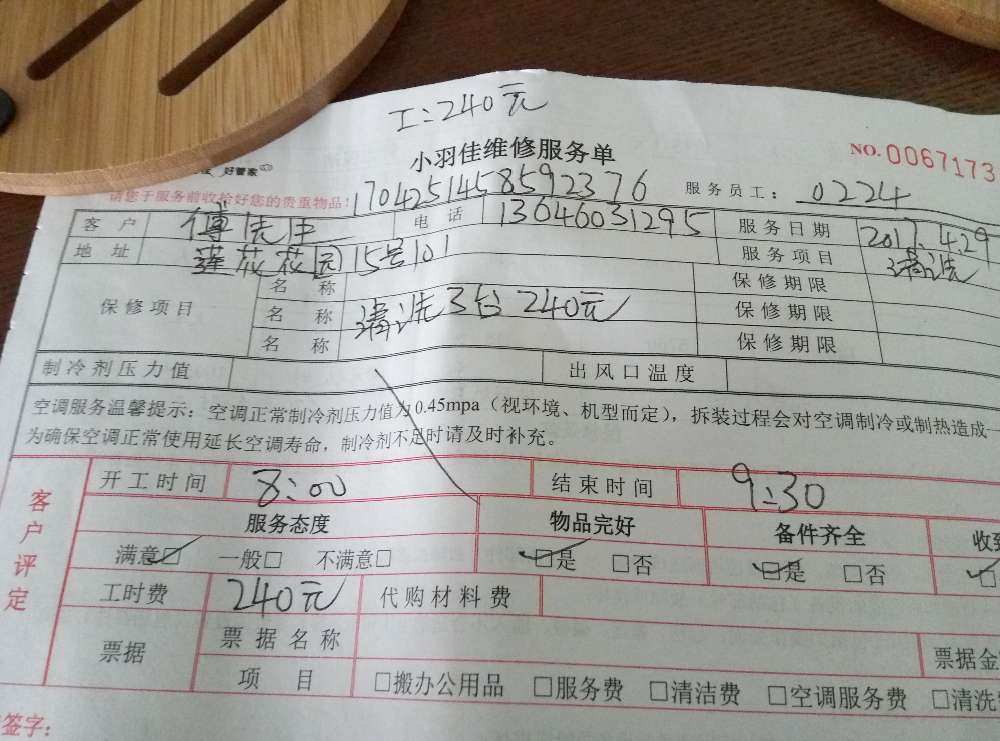 工:240元
好管家
小羽佳维修服务单
NO.0067173
请您于服务前收拾好您的贵重物品!
1704251458592376
服务员工: 0224
客户 傅先生 电话 13646031295 服务日期 2017.4.29
地址 莲花花园15号101 服务项目 清洗
保修项目 名称 保修期限
名称 清洗3台 240元 保修期限
名称 保修期限
制冷剂压力值 出风口温度
空调服务温馨提示:空调正常制冷剂压力值为0.45mpa(视环境、机型而定),拆装过程会对空调制冷或制热造成一
为确保空调正常使用延长空调寿命,制冷剂不足时请及时补充。
客户评定
开工时间 8:00 结束时间 9:30
服务态度 物品完好 备件齐全 收到
满意☑ 一般□ 不满意□ ☑是 □否 ☑是 □否
工时费 240元 代购材料费
票据 票据名称 票据金
项目 □搬办公用品 □服务费 □清洁费 □空调服务费 □清洗
签字: